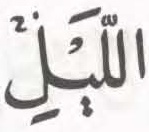 اللَّيْلِ